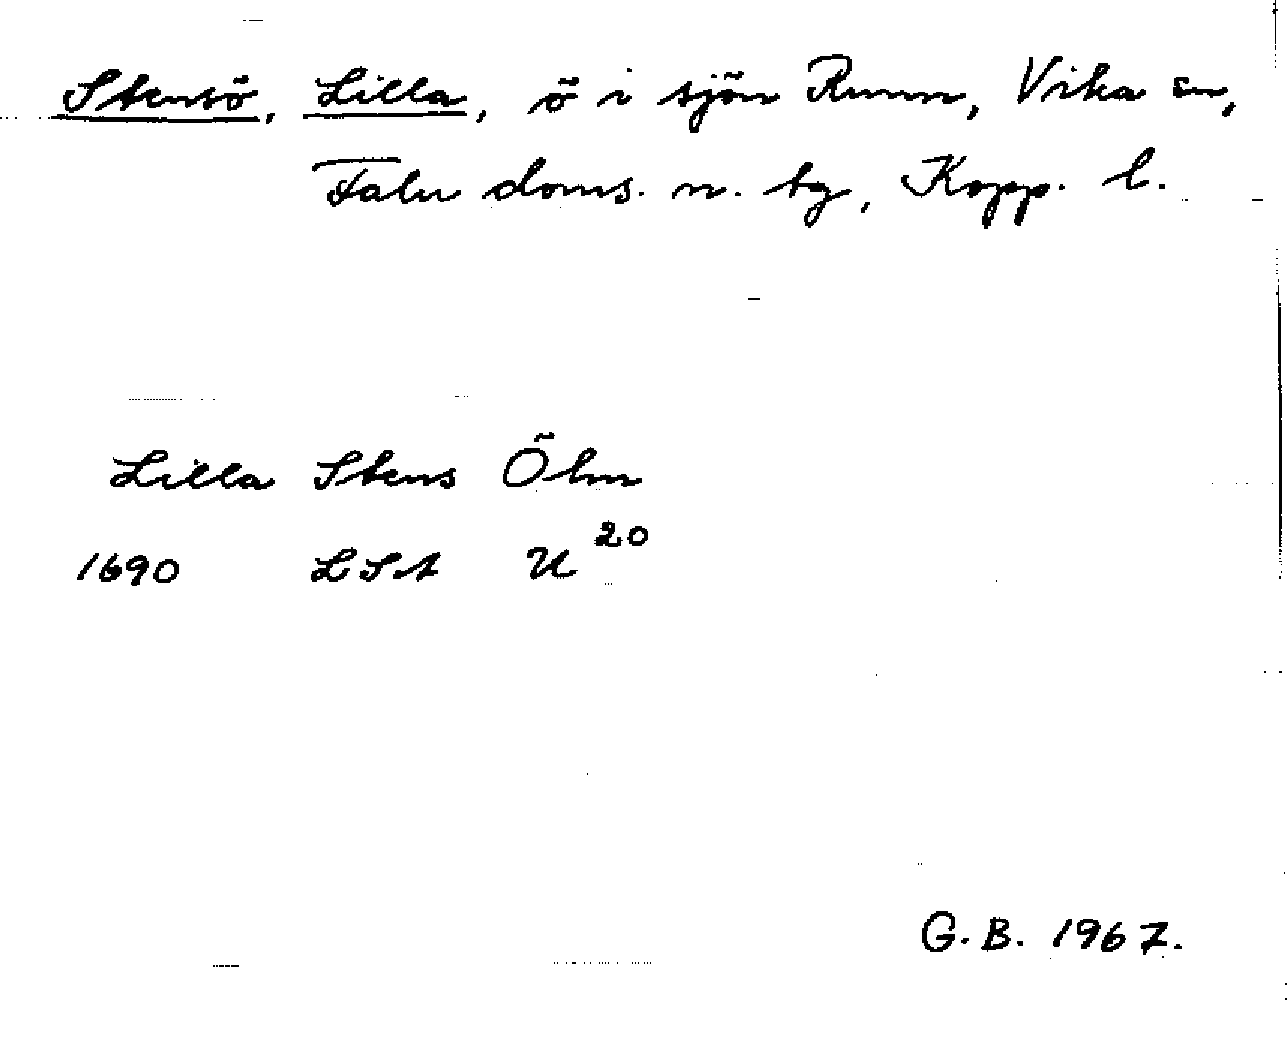 Stensö, Lilla, ö i sjön Runn, Vika sn,
Falu doms. n. tg, Kopp. l.
Lilla Stens Ölm
1690 LSA U 20
G.B. 1967.